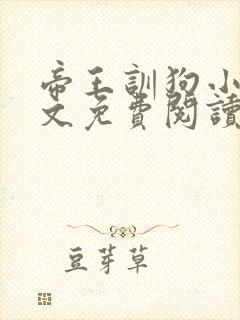 帝王訓狗小
文免費閱讀
豆芽草